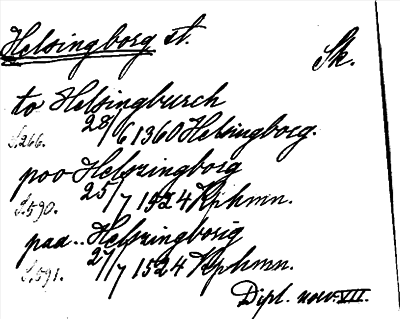 Helsingborg st. Sk.
to Helsingburch
S.266. 28/6 1360 Helsingborg.
poo Helszingborg
S.590. 25/7 1524 Kphmn.
paa.. Helszingborig
S.591. 27/7 1524 Kphmn.
Dipl. norv. VII.